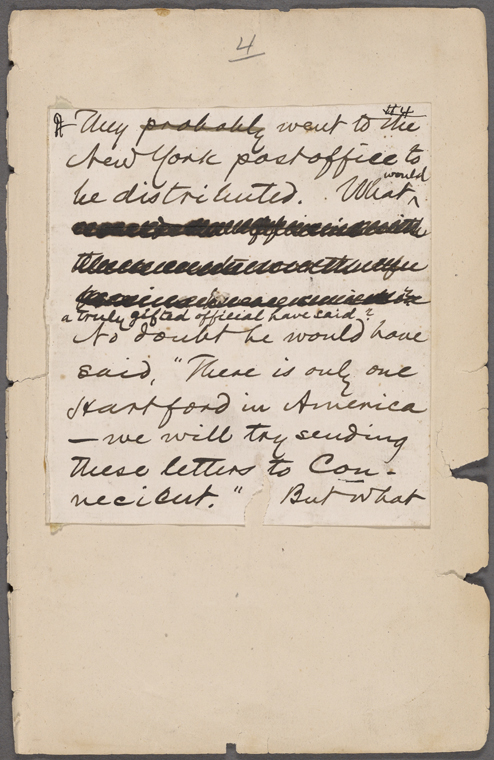 4
#4
They probably went to the
New York postoffice to
be distributed. What would
a truly gifted official have said?
No doubt he would have
said, "There is only one
Hartford in America
— we will try sending
these letters to Con-
necicut." But what